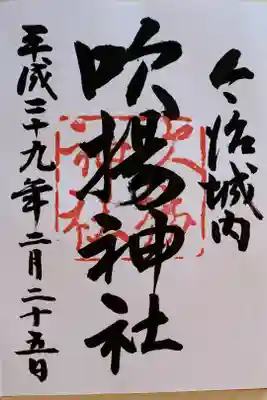 今治城内
吹揚神社
平成二十九年二月二十五日